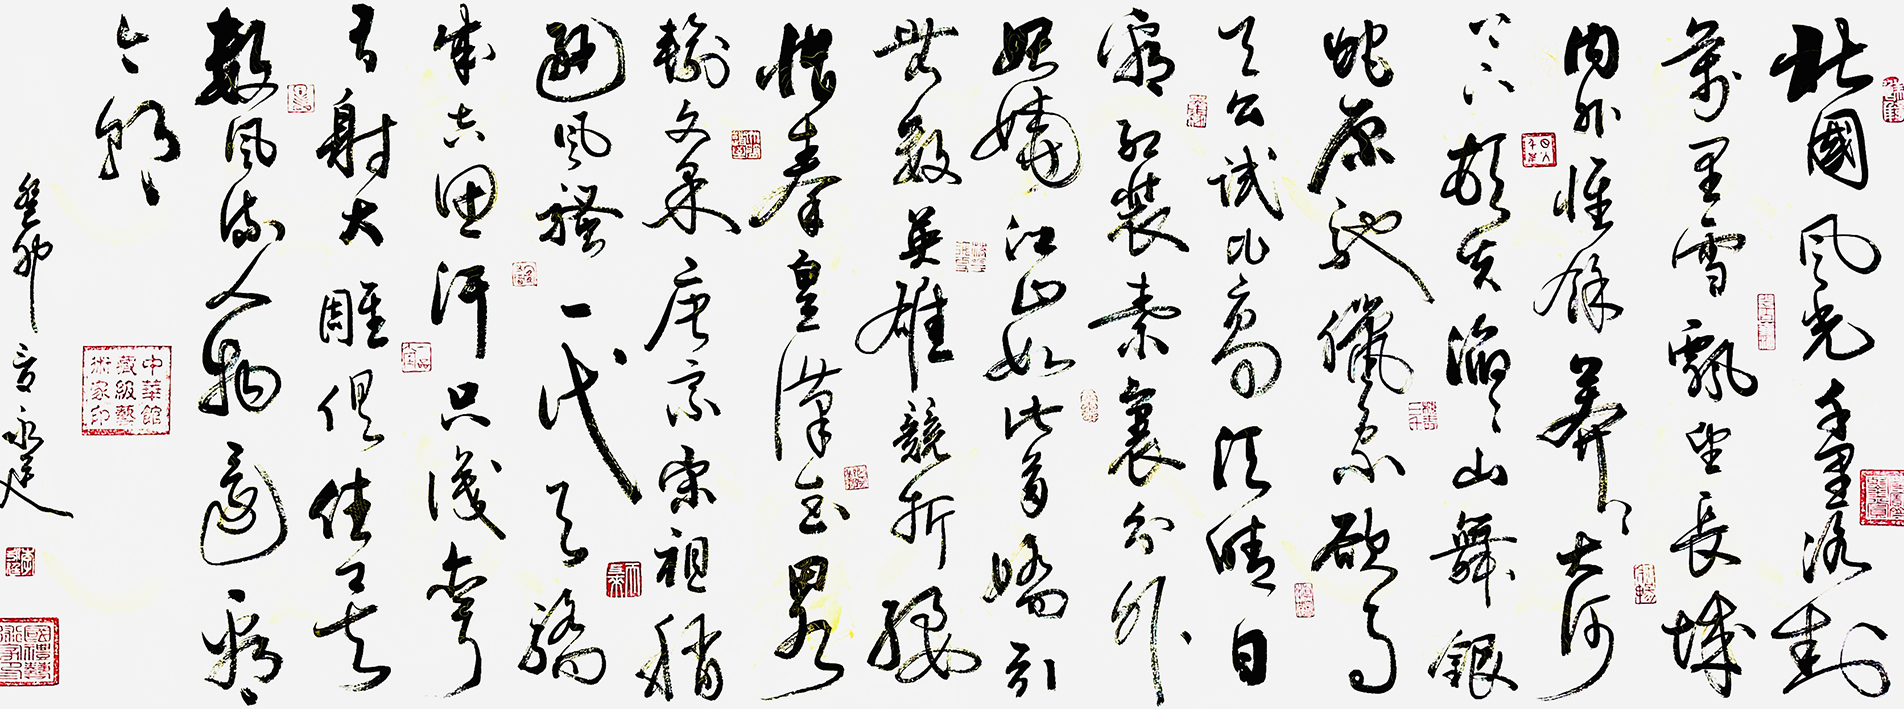 北國風光千里冰封
萬里雪飄望長城
内外惟餘莽莽大河
上下頓失滔滔山舞銀
蛇原馳蠟象欲與
天公試比高須晴日
看紅裝素裹分外
妖嬈江山如此多嬌引
無數英雄競折腰
惜秦皇漢武略
輸文采唐宗宋祖稍
遜風騷一代天驕
成吉思汗只識彎
弓射大雕俱往矣
數風流人物還看
今朝
癸卯 永
中華館
藏級藝
術家印